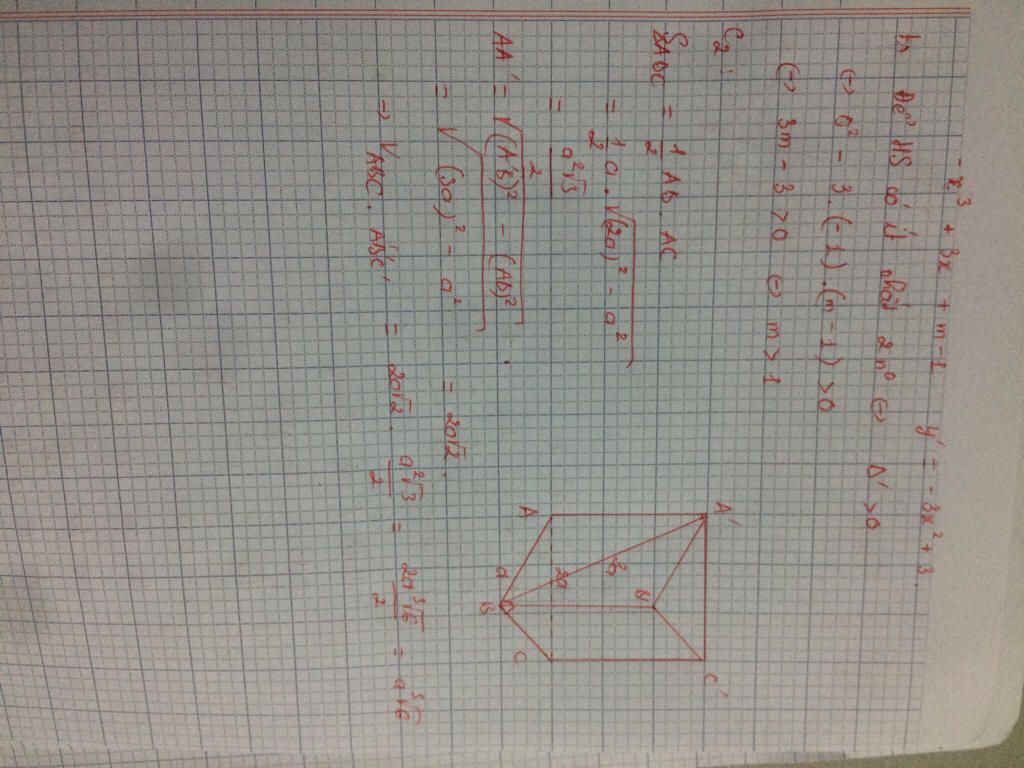 -x³ + 3x + m - 1    y' = -3x² + 3
b, Để HS có ít nhất 2 n⁰ (-) Δ' > 0
(-) 0² - 3.(-1).(m-1) > 0
(-) 3m - 3 > 0 (-) m > 1
C₂ :
SABC = 1/2 AB . AC
= 1/2 a . √((2a)² - a²)
= a²√3/2
AA' = √((A'b)² - (Ab)²) .
= √((3a)² - a²) = 2a√2 .
=) V ABC . A'B'C' = 2a√2 . a²√3/2 = 2a³√6/2 = a³√6
A'
C'
2a
A
C
a
B